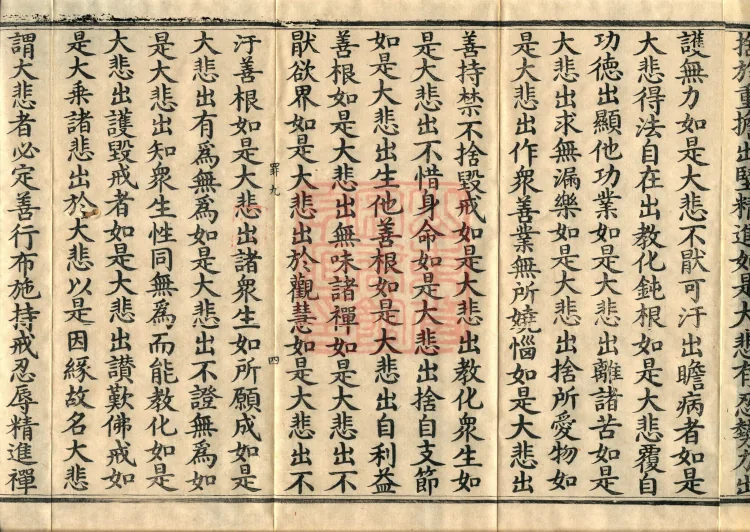 捨於重擔出堅精進如是大悲有忍勢力出
護無力如是大悲不厭可汙出瞻病者如是
大悲得法自在出教化鈍根如是大悲覆自
功德出顯他功業如是大悲出離諸苦如是
大悲出求無漏樂如是大悲出捨所愛物如
是大悲出作衆善業無所嬈惱如是大悲出
善持禁不捨毀戒如是大悲出教化衆生如
是大悲出不惜身命如是大悲出捨自支節
如是大悲出生他善根如是大悲出自利益
善根如是大悲出無味諸禪如是大悲出不
猒欲界如是大悲出於觀慧如是大悲出不
罪九
四
汙善根如是大悲出諸衆生如所願成如是
大悲出有爲無爲如是大悲出不證無爲如
是大悲出知衆生性同無爲而能教化如是
大悲出護毀戒者如是大悲出讃歎佛戒如
是大乘諸悲出於大悲以是因緣故名大悲
謂大悲者必定善行布施持戒忍辱精進禪